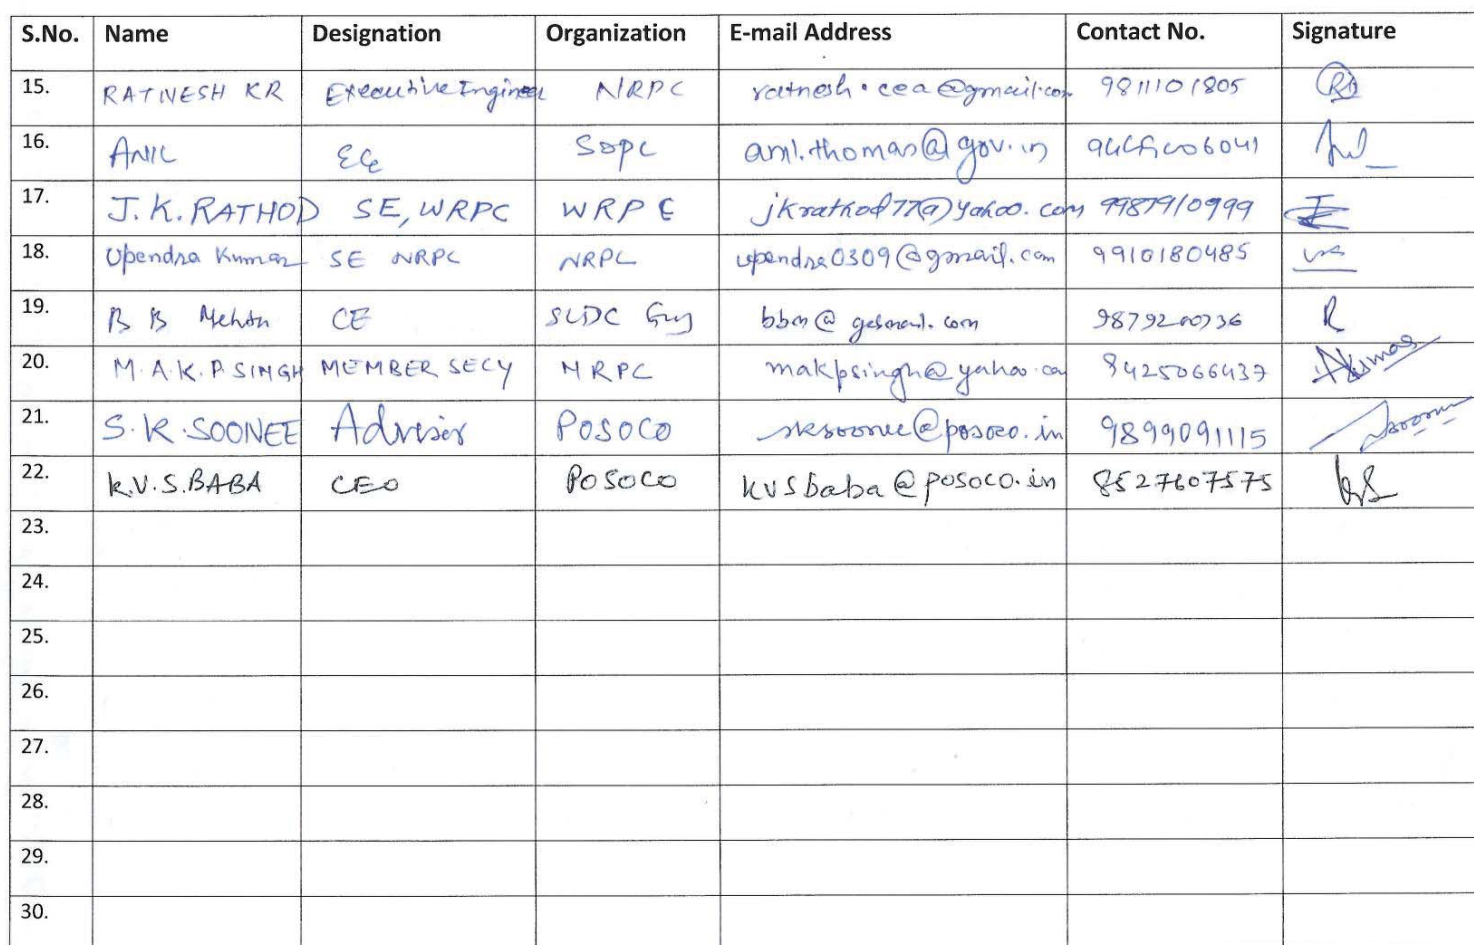 S.No. Name Designation Organization E-mail Address Contact No. Signature
15. RATNESH KR Executive Engineer NRPC ratnesh.cea@gmail.com 9811101805
16. ANIL anil.thomas@gov.in
17. J.K.RATHOD SE, WRPC WRPC jkrathod77@yahoo.com 9987910999
18. Upendra Kumar SE NRPC NRPC upendra0309@gmail.com 9910180485
19. B B Mehta CE SLDC Guj 9879200736
20. M.A.K.P SINGH MEMBER SECY NRPC makpsingh@yahoo.co 9425066437
21. S.K.SOONEE Advisor POSOCO sksoonee@posoco.in 9899091115
22. K.V.S.BABA CEO POSOCO kvsbaba@posoco.in 8527607575
23.
24.
25.
26.
27.
28.
29.
30.